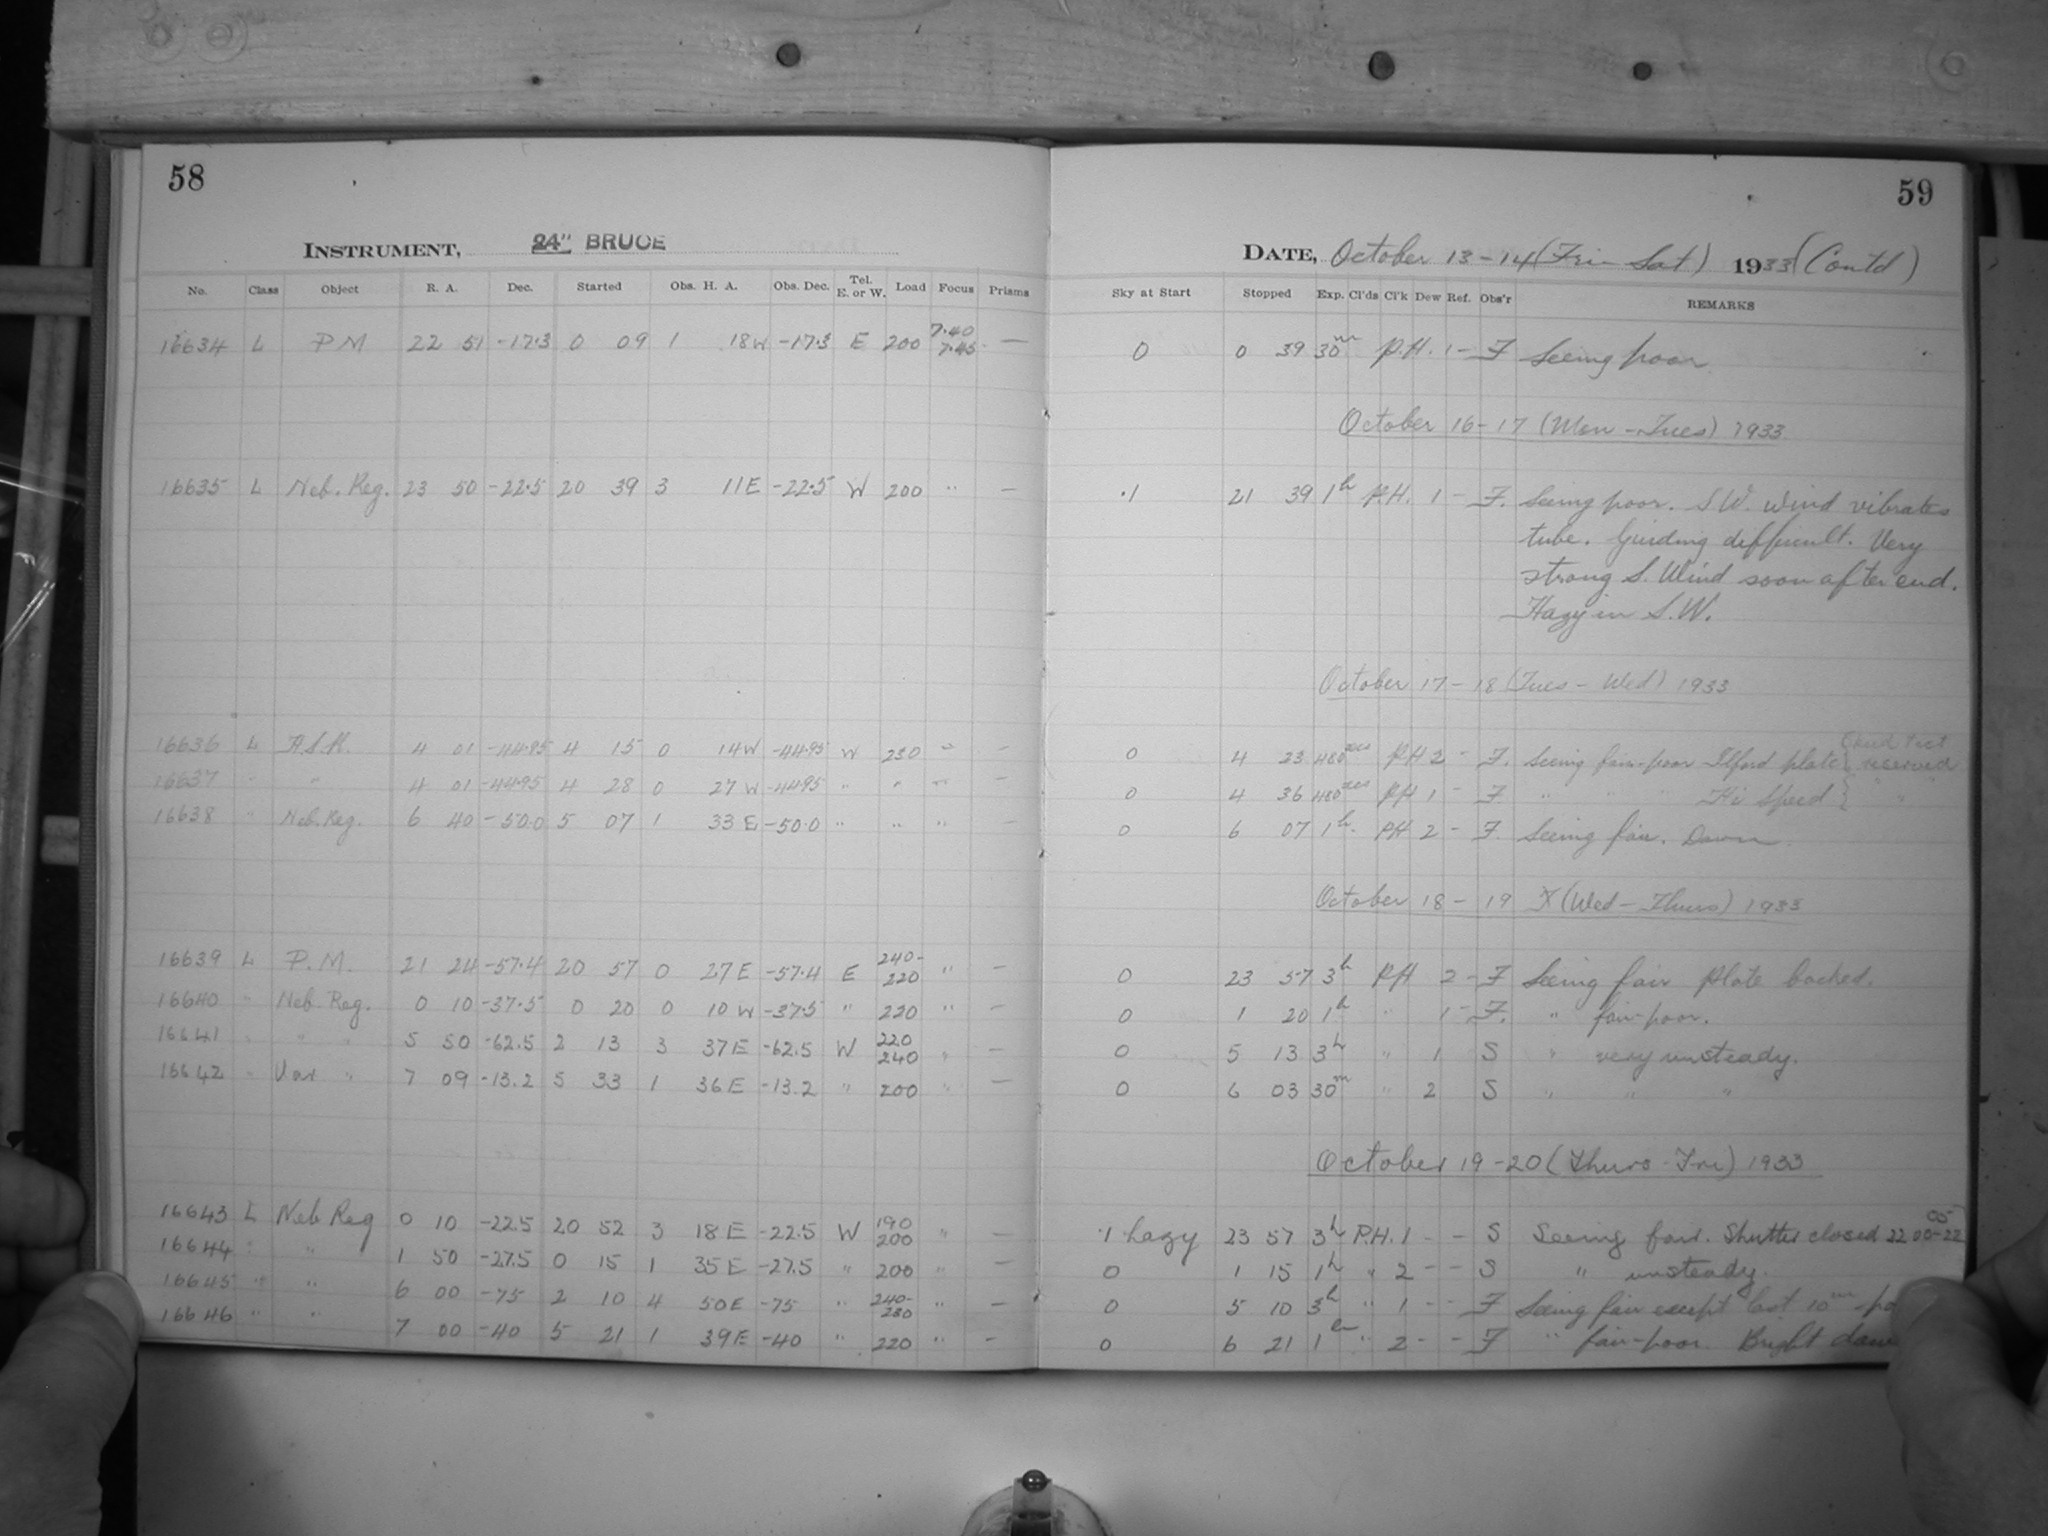 58
INSTRUMENT, 24" BRUCE
No. Class Object R. A. Dec. Started Obs. H. A. Obs. Dec. Tel. E. or W. Load Focus Prisms
16634 L P M 22 51 -17.3 0 09 1 18 W -17.3 E 200 7.40 7.45 —
16635 L Neb. Reg. 23 50 -22.5 20 39 3 11 E -22.5 W 200 " —
16636 L A.S.K. 4 01 -44.95 4 15 0 14 W -44.95 W 230 " —
16637 " " 4 01 -44.95 4 28 0 27 W -44.95 " " " —
16638 " Neb. Reg. 6 40 -50.0 5 07 1 33 E -50.0 " " " —
16639 L P.M. 21 24 -57.4 20 57 0 27 E -57.4 E 240-220 " —
16640 " Neb Reg. 0 10 -37.5 0 20 0 10 W -37.5 " 220 " —
16641 " " " 5 50 -62.5 2 13 3 37 E -62.5 W 220 240 " —
16642 " Var " 7 09 -13.2 5 33 1 36 E -13.2 " 200 " —
16643 L Neb Reg 0 10 -22.5 20 52 3 18 E -22.5 W 190 200 " —
16644 " " 1 50 -27.5 0 15 1 35 E -27.5 " 200 " —
16645 " " 6 00 -75 2 10 4 50 E -75 " 240- 230 " —
16646 " " 7 00 -40 5 21 1 39 E -40 " 220 " —
59
DATE, October 13-14 (Fri - Sat) 1933 (Contd)
Sky at Start Stopped Exp. Cl'ds Cl'k Dew Ref. Obs'r REMARKS
0 0 39 30m P.H. 1 - F Seeing poor
October 16-17 (Mon - Tues) 1933
.1 21 39 1h P.H. 1 - F. Seeing poor. S.W. wind vibrates
tube. Guiding difficult. Very
strong S. Wind soon after end.
Hazy in S.W.
October 17-18 (Tues - Wed) 1933
0 4 23 480 secs PH 2 - F. Seeing fair-poor Ilford plate reserved
0 4 36 480 secs PH 1 - F " " " Hi Speed " "
0 6 07 1h. PH 2 - F. Seeing fair. Dawn
October 18-19 (Wed - Thurs) 1933
0 23 57 3h PH 2 - F Seeing fair Plate backed.
0 1 20 1h " 1 - F. " fair-poor.
0 5 13 3h " 1 S " very unsteady.
0 6 03 30m " 2 S " " "
October 19-20 (Thurs - Fri) 1933
.1 hazy 23 57 3h P.H. 1 - - S Seeing fair. Shutter closed 22 00-22 05
0 1 15 1h " 2 - - S " unsteady.
0 5 10 3h " 1 - - F Seeing fair except last 10m
0 6 21 1h " 2 - - F " fair-poor. Bright